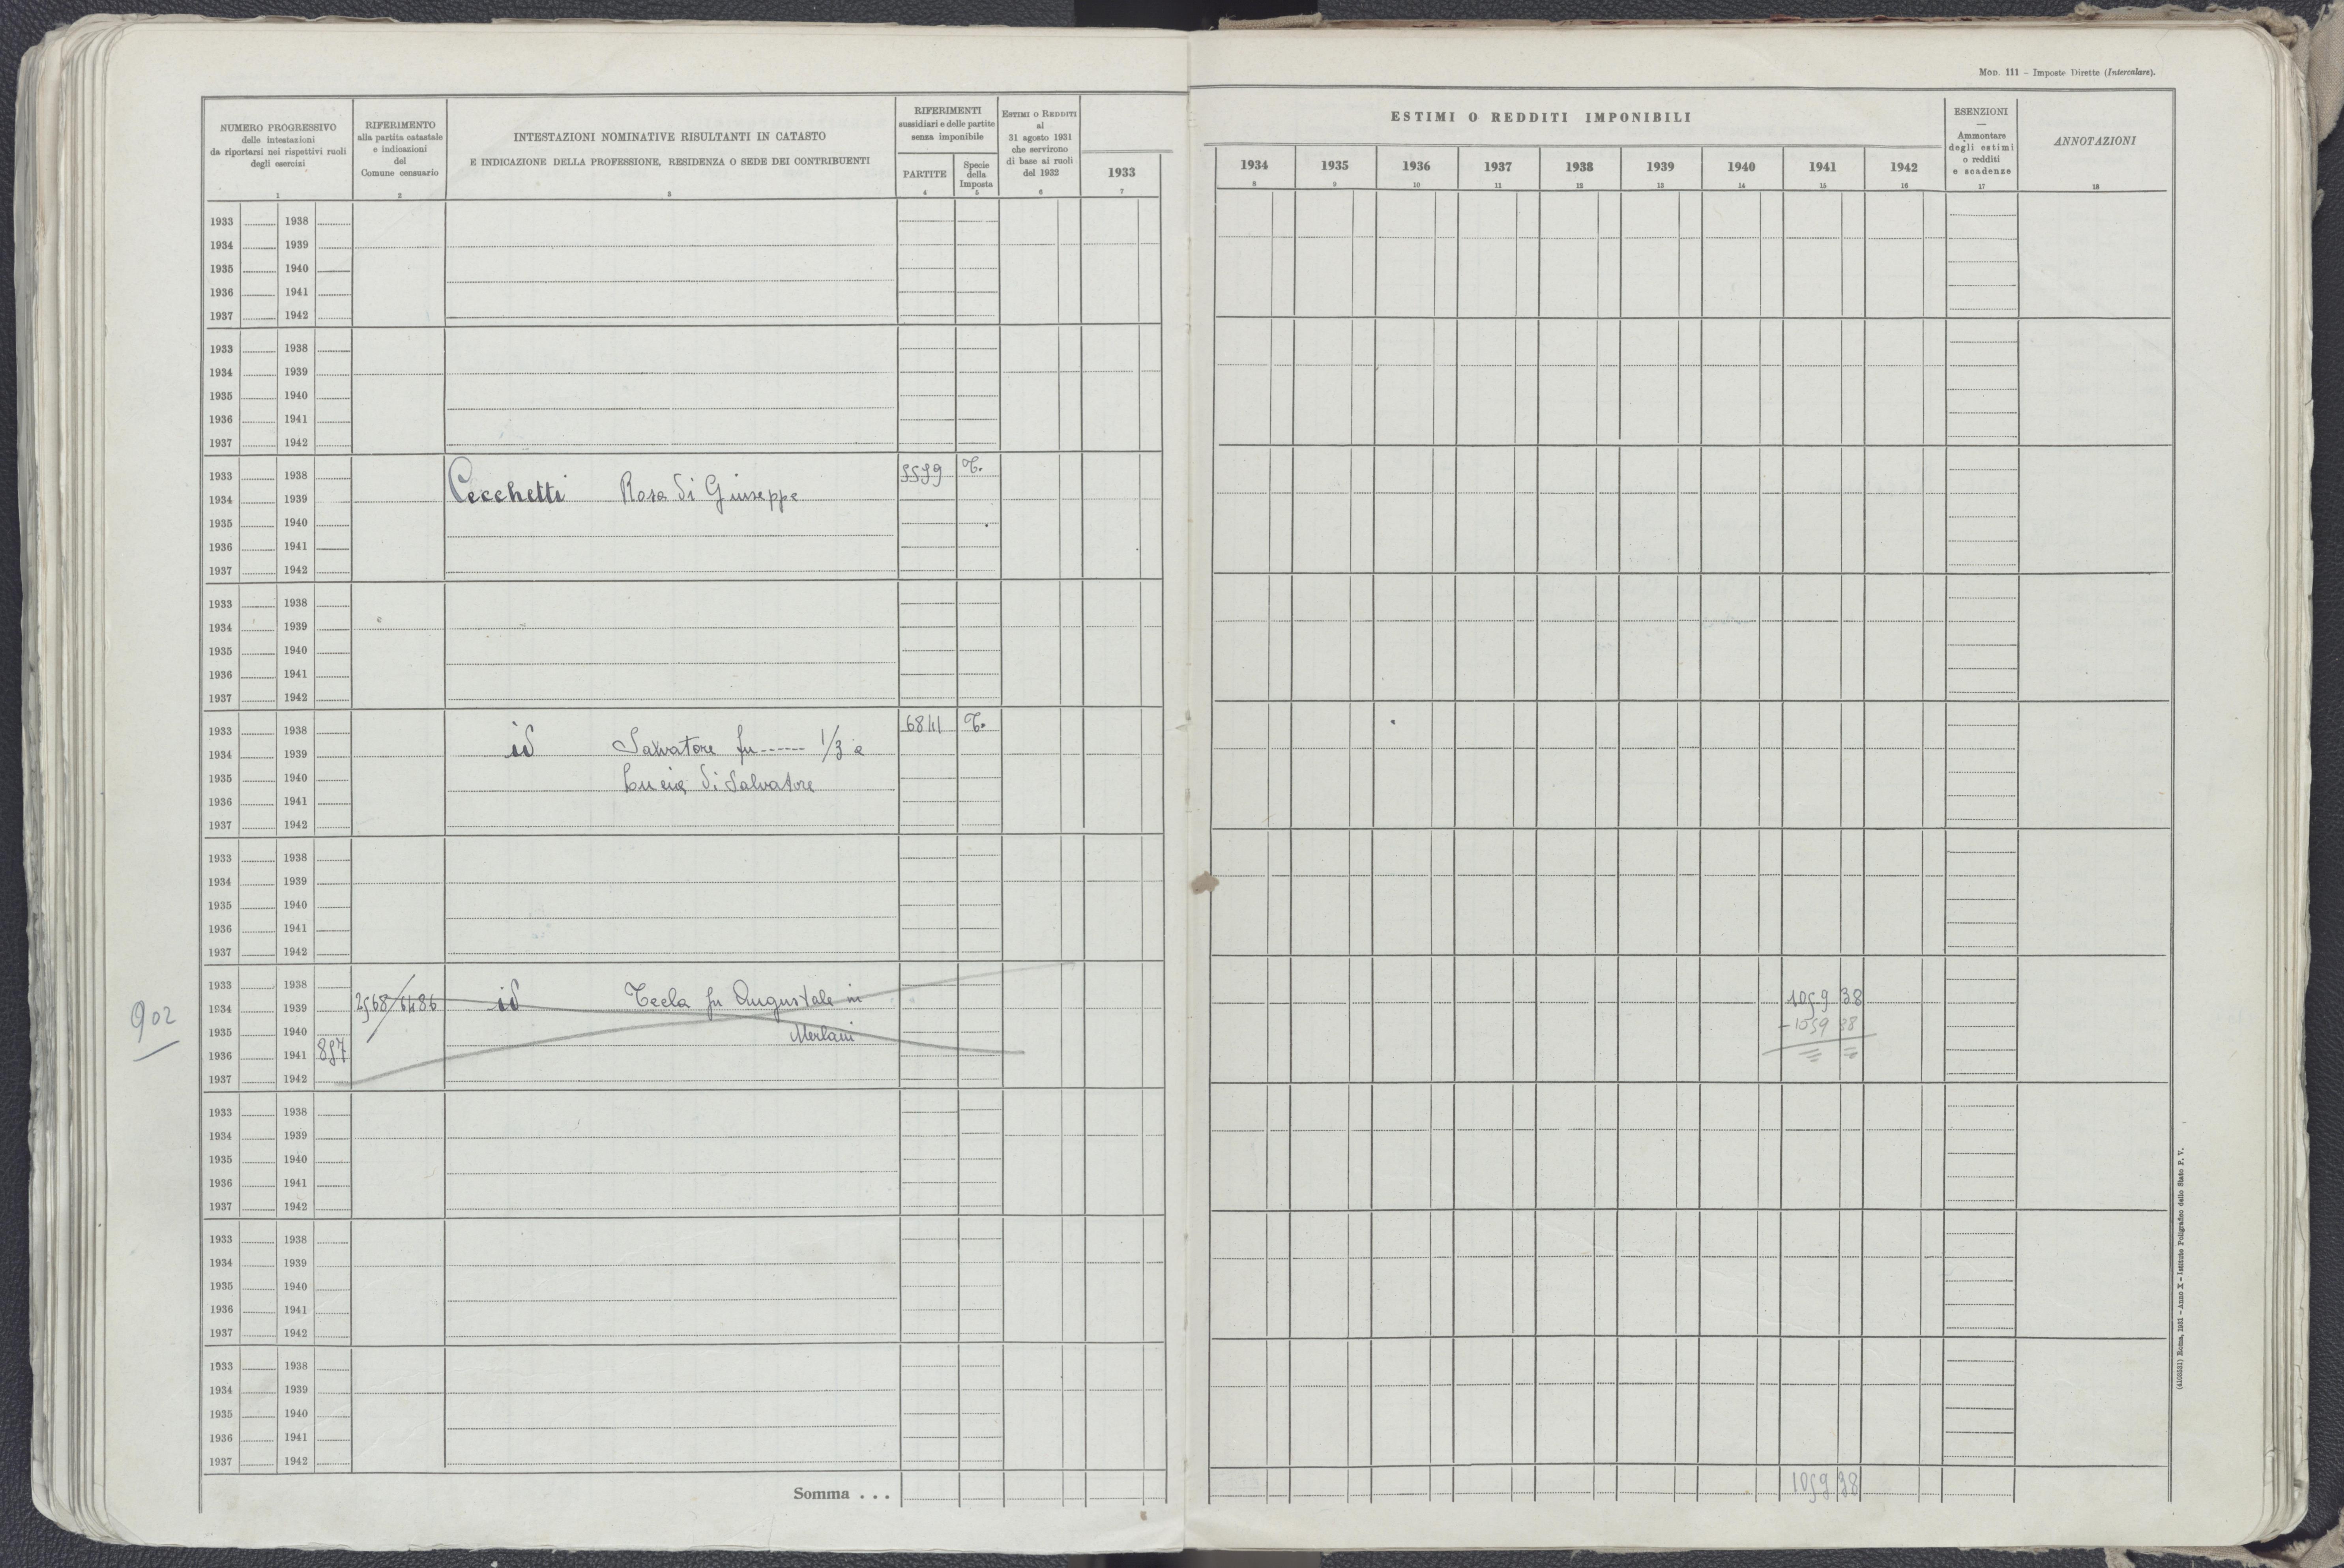 MOD. 111 – Imposte Dirette (Intercalare).
NUMERO PROGRESSIVO
delle intestazioni
da riportarsi nei rispettivi ruoli
degli esercizi
1
RIFERIMENTO
alla partita catastale
e indicazioni
del
Comune censuario
2
INTESTAZIONI NOMINATIVE RISULTANTI IN CATASTO
E INDICAZIONE DELLA PROFESSIONE, RESIDENZA O SEDE DEI CONTRIBUENTI
3
RIFERIMENTI
sussidiari e delle partite
senza imponibile
PARTITE
4
Specie
della
Imposta
5
ESTIMI O REDDITI
al
31 agosto 1931
che servirono
di base ai ruoli
del 1932
6
1933
7
ESTIMI O REDDITI IMPONIBILI
1934 1935 1936 1937 1938 1939 1940 1941 1942
8 9 10 11 12 13 14 15 16
ESENZIONI
—
Ammontare
degli estimi
o redditi
e scadenze
17
ANNOTAZIONI
18
1933 1938
1934 1939
1935 1940
1936 1941
1937 1942
1933 1938
1934 1939
1935 1940
1936 1941
1937 1942
1933 1938 T.
1934 1939 Cecchetti Rosa di Giuseppe
1935 1940
1936 1941
1937 1942
1933 1938
1934 1939
1935 1940
1936 1941
1937 1942
1933 1938 T.
1934 1939 id Salvatore fu ------ 1/3 e
1935 1940 Lucia di Salvatore
1936 1941
1937 1942
1933 1938
1934 1939
1935 1940
1936 1941
1937 1942
1933 1938
902 1934 1939 2568/6486 id Tecla fu Augustale in 1059 38
1935 1940 Merlani – 1059 38
1936 1941 857 = =
1937 1942
1933 1938
1934 1939
1935 1940
1936 1941
1937 1942
1933 1938
1934 1939
1935 1940
1936 1941
1937 1942
1933 1938
1934 1939
1935 1940
1936 1941
1937 1942
Somma . . . 1059 38
Roma, 1931 – Anno X – Istituto Poligrafico dello Stato P. V.